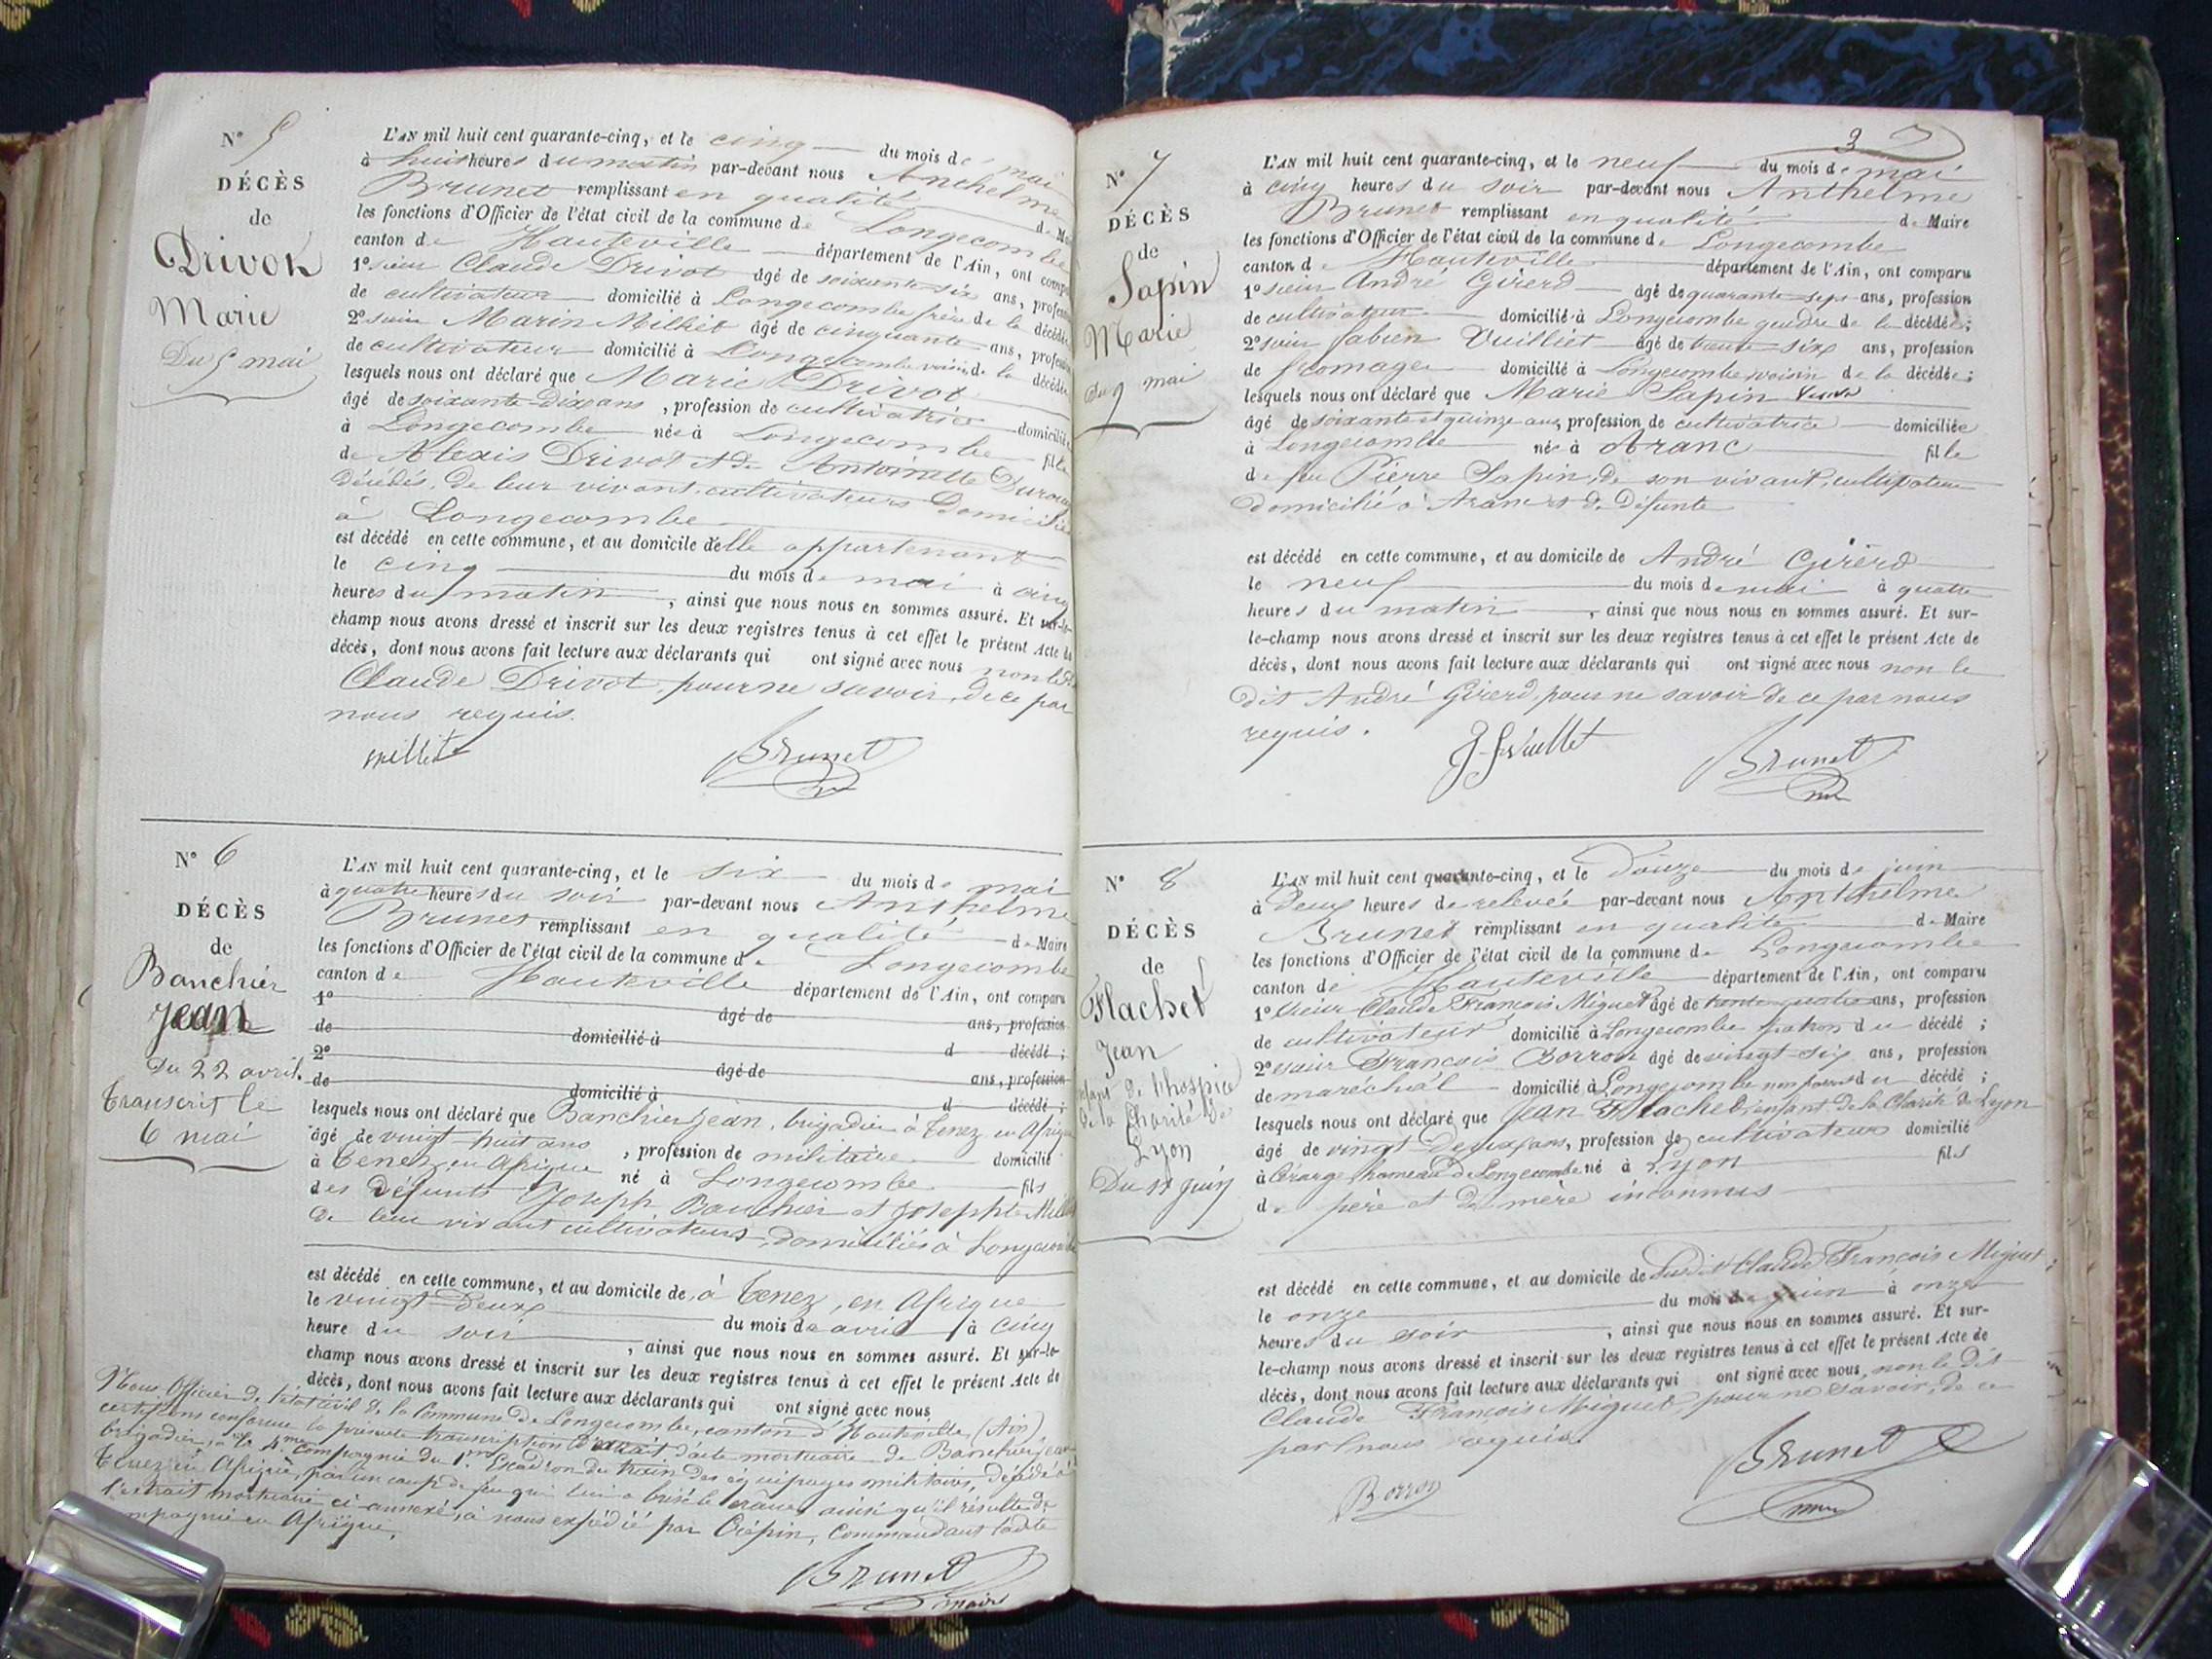 N° 5
DÉCÈS
de
Drivot
Marie
Du 5 mai
L'AN mil huit cent quarante-cinq, et le cinq du mois de mai
à huit heures du matin par-devant nous Anthelme
Brunet remplissant en qualité de Maire
les fonctions d'Officier de l'état civil de la commune de Longecombe
canton de Hauteville département de l'Ain, ont comparu
1° sieur Claude Drivot âgé de soixante-six ans, profession
de cultivateur domicilié à Longecombe frère de la décédée
2° sieur Marin Milliet âgé de cinquante ans, profession
de cultivateur domicilié à Longecombe voisin de la décédée
lesquels nous ont déclaré que Marie Drivot
âgé de soixante-dix ans, profession de cultivatrice domiciliée
à Longecombe née à Longecombe fille
de Alexis Drivot et de Antoinette
décédés, de leur vivant, cultivateurs Domiciliés
à Longecombe
est décédé en cette commune, et au domicile d'elle appartenant
le cinq du mois de mai à cinq
heures du matin, ainsi que nous nous en sommes assuré. Et sur-le-
champ nous avons dressé et inscrit sur les deux registres tenus à cet effet le présent Acte de
décès, dont nous avons fait lecture aux déclarants qui ont signé avec nous non le dt
Claude Drivot, pour ne savoir, de ce par
nous requis.
Milliet Brunet
N° 6
DÉCÈS
de
Banchier
Jean
Du 22 avril
Transcrit le
6 mai
L'AN mil huit cent quarante-cinq, et le six du mois de mai
à quatre heures du soir par-devant nous Anthelme
Brunet remplissant en qualité de Maire
les fonctions d'Officier de l'état civil de la commune de Longecombe
canton de Hauteville département de l'Ain, ont comparu
1° âgé de ans, profession
de domicilié à d décédé ;
2° âgé de ans, profession
de domicilié à d décédé ;
lesquels nous ont déclaré que Banchier Jean, brigadier à Tenez en Afrique
âgé de vingt-huit ans, profession de militaire domicilié
à Tenez en Afrique né à Longecombe fils
des Défunts Joseph Banchier et Josephte
de leur vivant cultivateurs, domiciliés à Longecombe
est décédé en cette commune, et au domicile de, à Tenez, en Afrique
le vingt-deux du mois de avril à cinq
heure du soir, ainsi que nous nous en sommes assuré. Et sur-le-
champ nous avons dressé et inscrit sur les deux registres tenus à cet effet le présent Acte de
décès, dont nous avons fait lecture aux déclarants qui ont signé avec nous
Nous Officier de l'état civil de la Commune de Longecombe, canton d'Hauteville (Ain)
certifions conforme la présente transcription d'extrait d'acte mortuaire de Banchier Jean
brigadier à la 4.me compagnie du 1.er Escadron du train des équipages militaires, décédé à
Tenez en Afrique, par un coup de feu qui lui a brisé le crâne, ainsi qu'il résulte de
l'extrait mortuaire ci-annexé, à nous expédié par Crépin, Commandant ladite
compagnie en Afrique.
Brunet
maire
37
N° 7
DÉCÈS
de
Sapin
Marie
du 9 mai
L'AN mil huit cent quarante-cinq, et le neuf du mois de mai
à cinq heures du soir par-devant nous Anthelme
Brunet remplissant en qualité de Maire
les fonctions d'Officier de l'état civil de la commune de Longecombe
canton de Hauteville département de l'Ain, ont comparu
1° sieur André Girerd âgé de quarante sept ans, profession
de cultivateur domicilié à Longecombe gendre de la décédée ;
2° sieur fabien Vuilliet âgé de trente-six ans, profession
de fromager domicilié à Longecombe, voisin de la décédée ;
lesquels nous ont déclaré que Marie Sapin
âgé de soixante et quinze ans, profession de cultivatrice domiciliée
à Longecombe née à Aranc fille
de feu Pierre Sapin, de son vivant, cultivateur
domicilié à Aranc et de Défunte
est décédé en cette commune, et au domicile de André Girerd
le neuf du mois de mai à quatre
heures du matin, ainsi que nous nous en sommes assuré. Et sur-
le-champ nous avons dressé et inscrit sur les deux registres tenus à cet effet le présent Acte de
décès, dont nous avons fait lecture aux déclarants qui ont signé avec nous non le
dit André Girerd, pour ne savoir de ce par nous
requis.
Brunet
N° 8
DÉCÈS
de
Flachet
Jean
enfant de l'hospice
de la Charité de
Lyon
Du 11 juin
L'AN mil huit cent quarante-cinq, et le Douze du mois de juin
à deux heures de relevée par-devant nous Anthelme
Brunet remplissant en qualité de Maire
les fonctions d'Officier de l'état civil de la commune de Longecombe
canton de Hauteville département de l'Ain, ont comparu
1° sieur Claude François Miguet âgé de trente-quatre ans, profession
de cultivateur domicilié à Longecombe patron du décédé ;
2° sieur François Borron âgé de vingt-six ans, profession
de maréchal domicilié à Longecombe non parent du décédé ;
lesquels nous ont déclaré que Jean Flachet, enfant de la Charité de Lyon
âgé de vingt-Deux ans, profession de cultivateur domicilié
à hameau de Longecombe né à Lyon fils
de père et de mère inconnus
est décédé en cette commune, et au domicile de dudit Claude François Miguet
le onze du mois de juin à onze
heures du soir, ainsi que nous nous en sommes assuré. Et sur-
le-champ nous avons dressé et inscrit sur les deux registres tenus à cet effet le présent Acte de
décès, dont nous avons fait lecture aux déclarants qui ont signé avec nous, non le dit
Claude François Miguet, pour ne savoir, de ce
par nous requis.
Borron Brunet